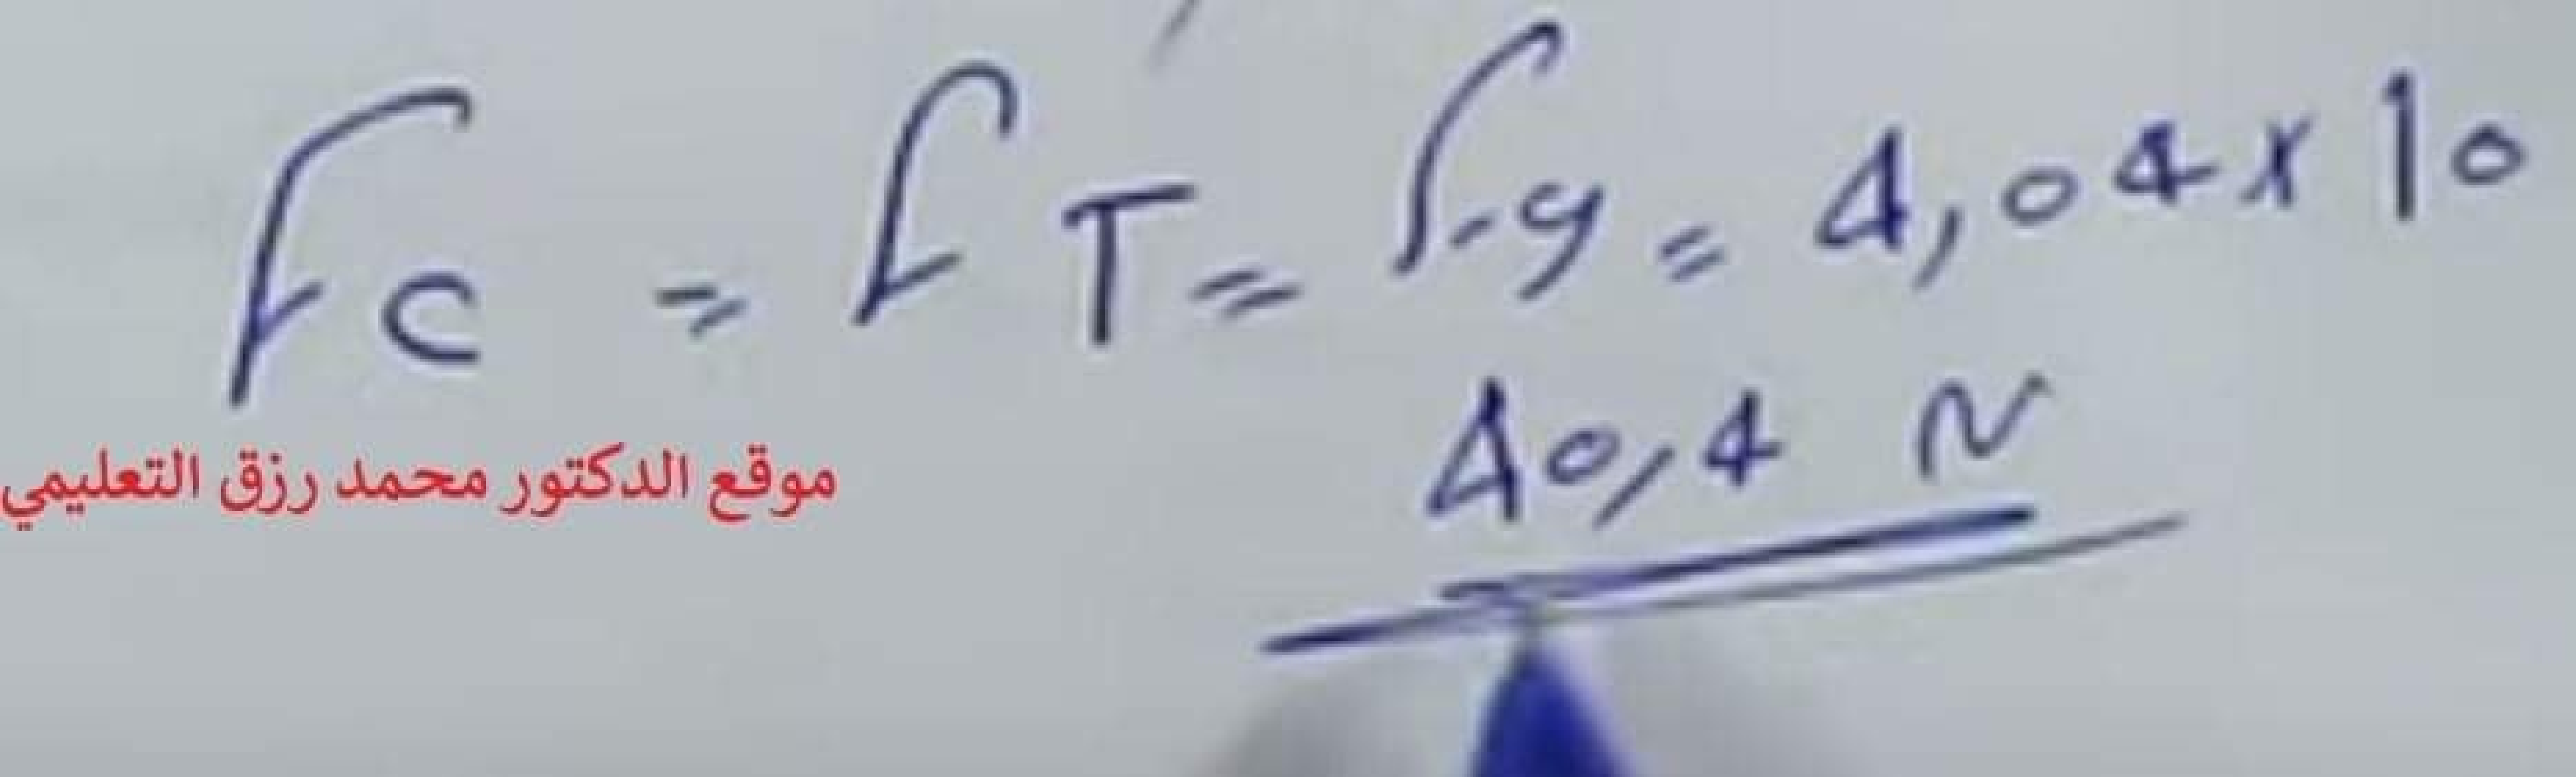 Fc = FT = Fg = 4,04 x 10
40,4 N
موقع الدكتور محمد رزق التعليمي